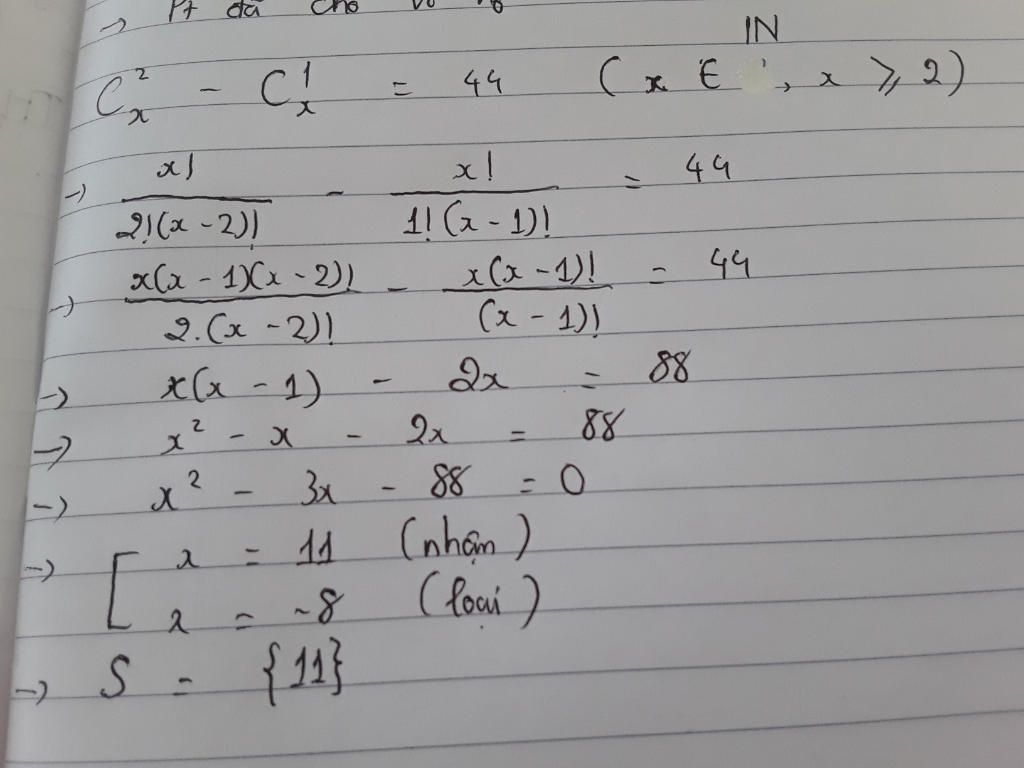 → Pt đã cho vô
C²ₓ - C¹ₓ = 44 (x ∈ IN, x ⩾ 2)
→ x! / 2!(x - 2)! - x! / 1!(x - 1)! = 44
→ x(x - 1)(x - 2)! / 2.(x - 2)! - x(x - 1)! / (x - 1)! = 44
→ x(x - 1) - 2x = 88
→ x² - x - 2x = 88
→ x² - 3x - 88 = 0
→ [ x = 11 (nhận)
x = -8 (loại)
→ S = {11}